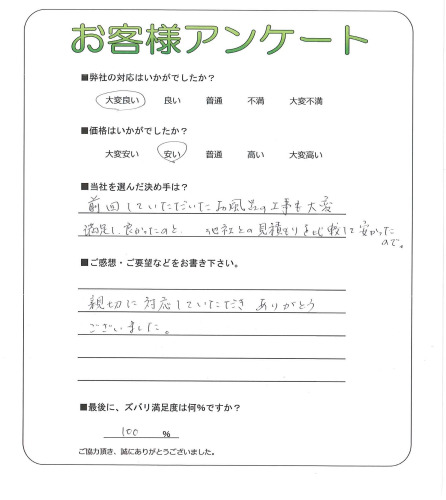 お客様アンケート
■弊社の対応はいかがでしたか？
大変良い 良い 普通 不満 大変不満
■価格はいかがでしたか？
大変安い 安い 普通 高い 大変高い
■当社を選んだ決め手は？
前回していただいたお風呂の工事も大変
満足し、良かったのと、 他社との見積もりを比較して安かった
ので。
■ご感想・ご要望などをお書き下さい。
親切に対応していただき ありがとう
ございました。
■最後に、ズバリ満足度は何%ですか？
100 %
ご協力頂き、誠にありがとうございました。